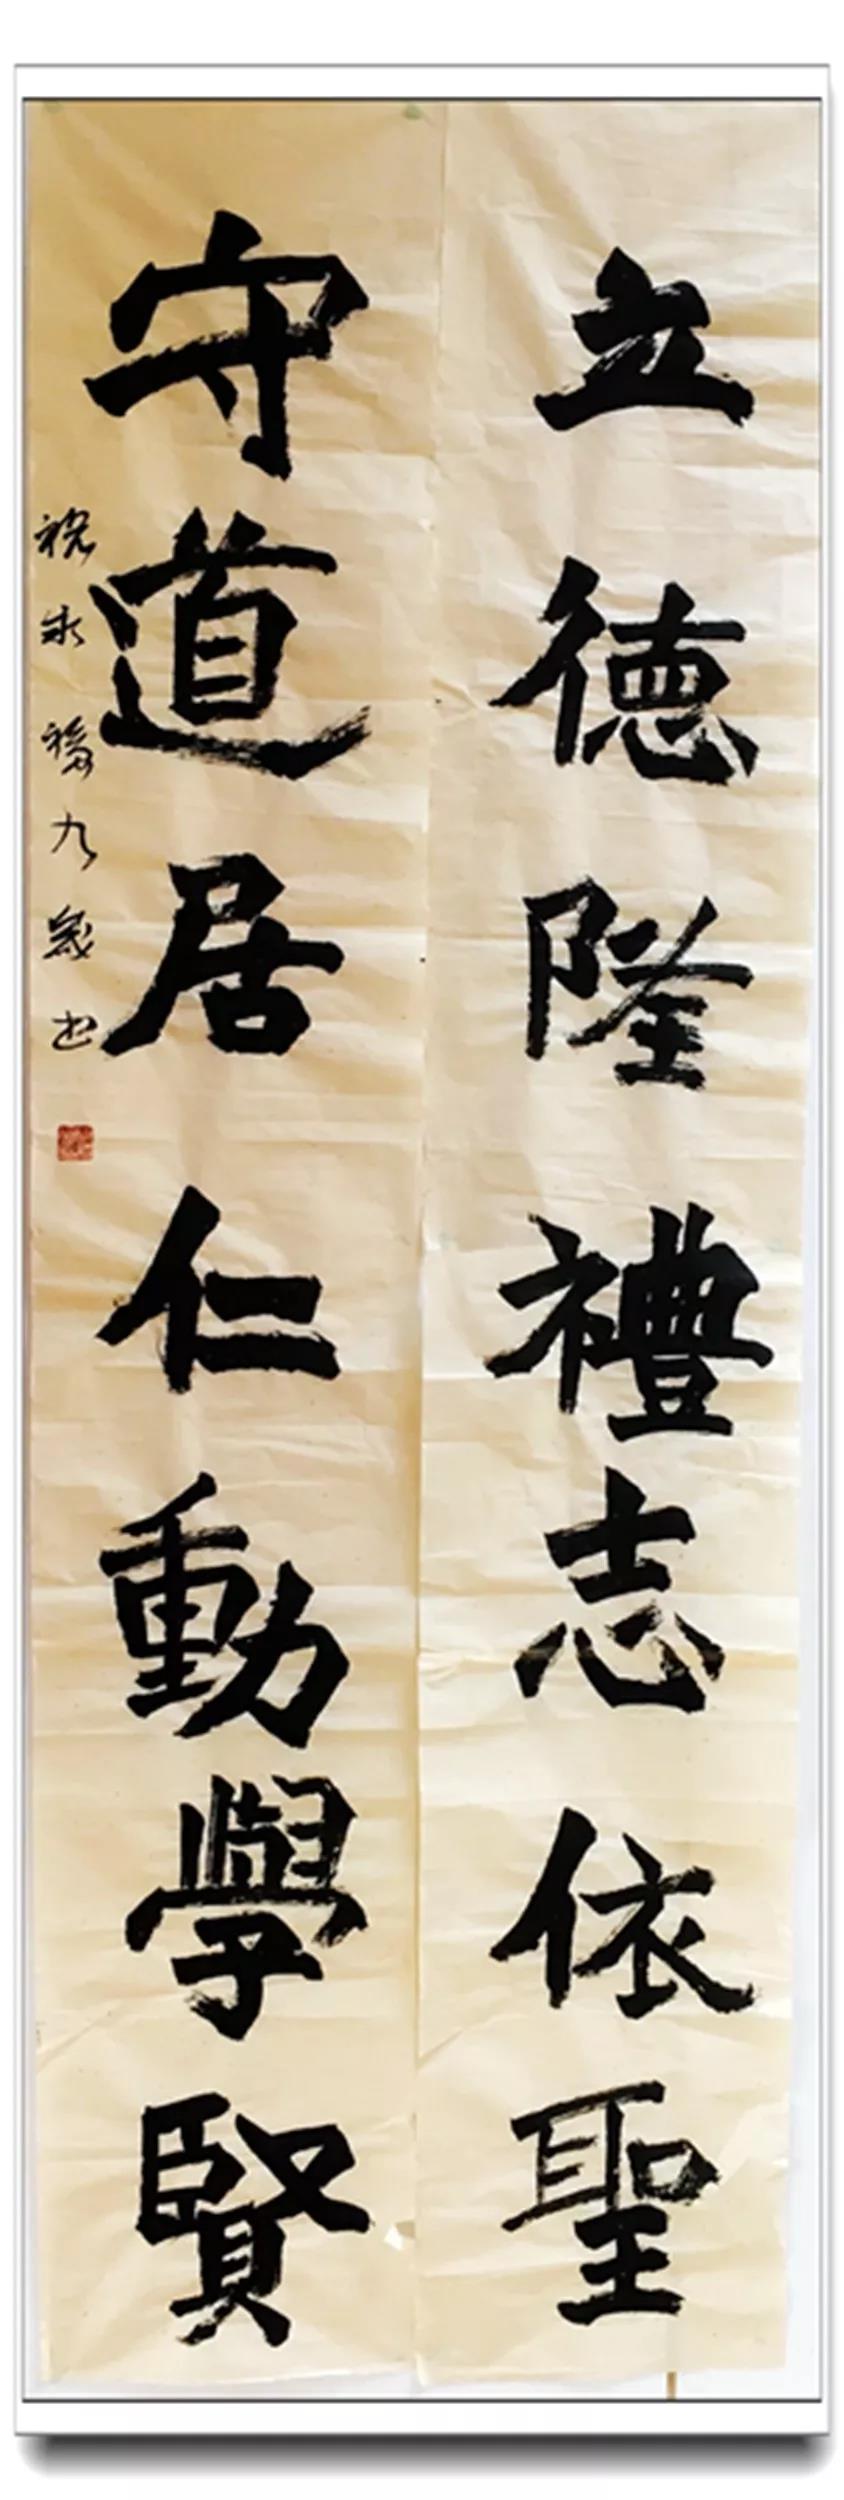 立德隆禮志依聖
守道居仁動學賢
祝永福九歲书